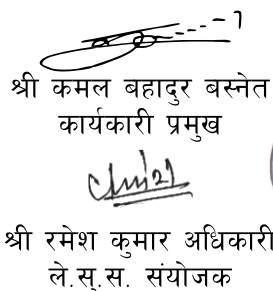 श्री कमल बहादुर बस्नेत
कार्यकारी प्रमुख
श्री रमेश कुमार अधिकारी
ले.स्.स. संयोजक